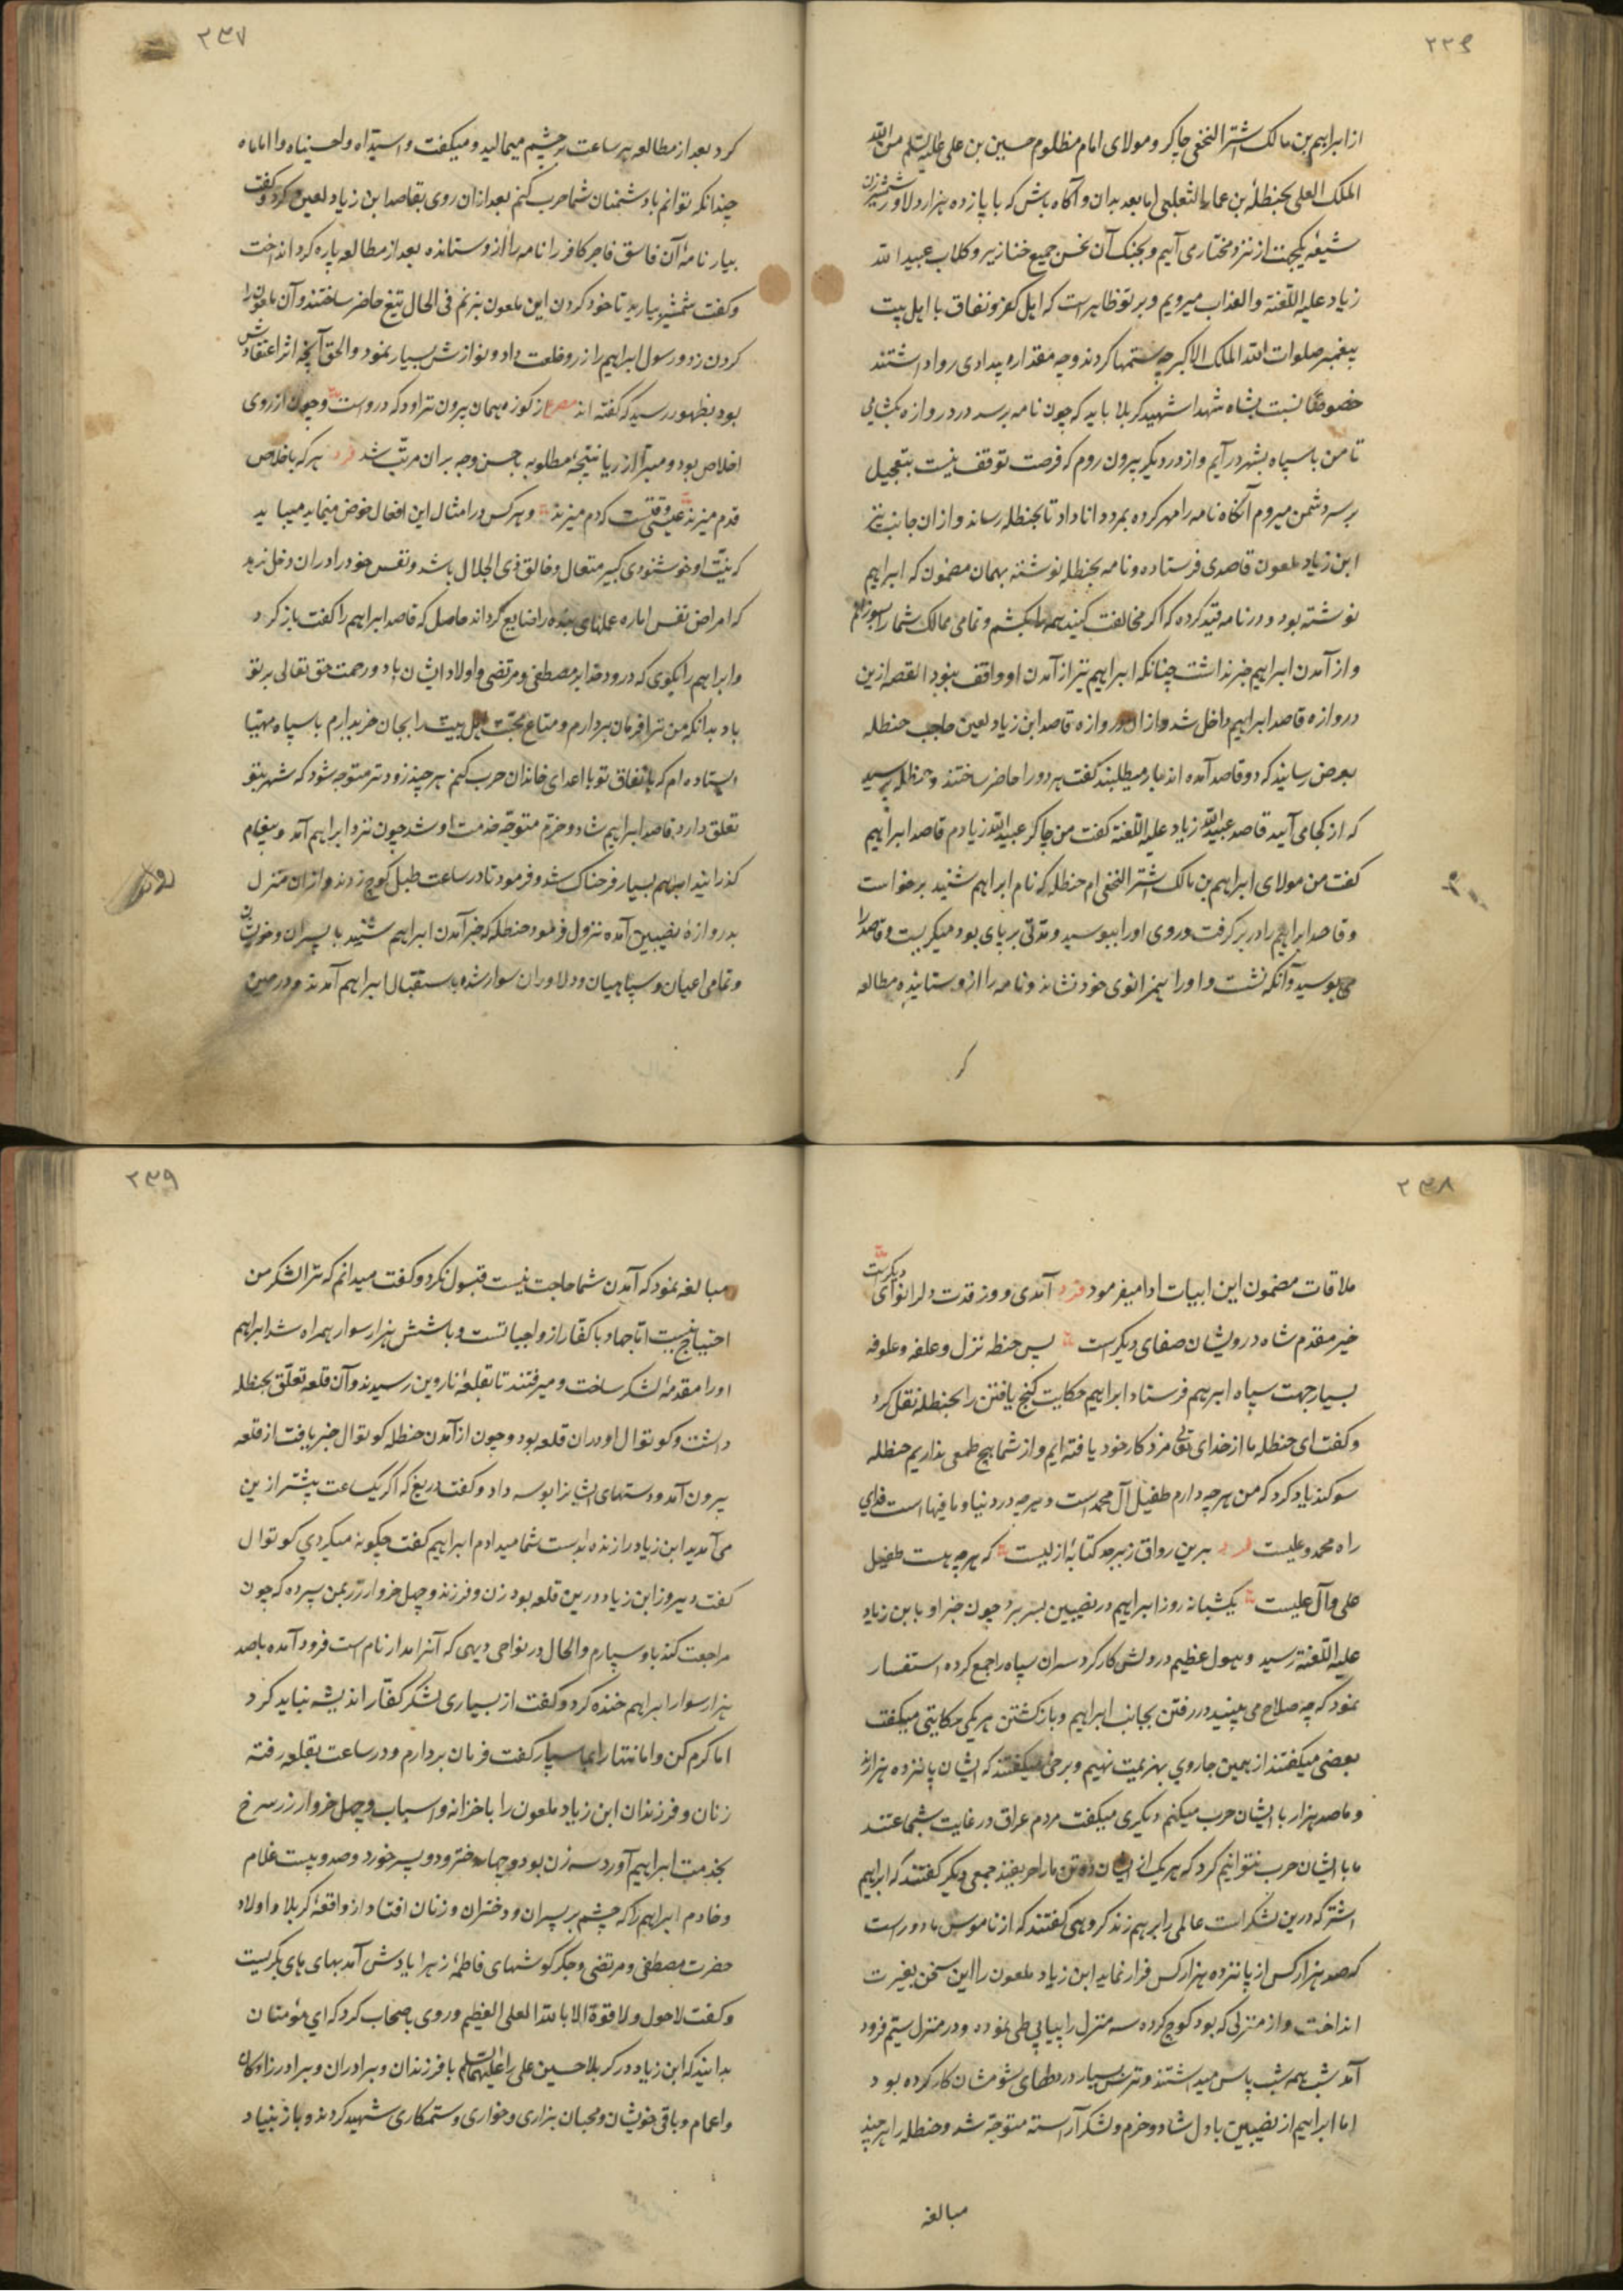 ۲۳۶
از ابراهیم بن مالک اشتر النخعی چاکر و مولای امام مظلوم حسین بن علی علیه السلم من الله
الملک العلی بحنظلهٔ بن عمار الثعلبی اما بعد بدان و آکاه باش که با پازده هزار دلاور شمشیرزن
شیعهٔ یکجهت از نزد مختار می آییم و بجنک آن نحس جمیع خنازیر و کلاب عبید الله
زیاد علیه اللعنة والعذاب میرویم و بر تو ظاهر است که اهل کفر و نفاق با اهل بیت
پیغمبر صلوات الله الملک الاکبر چه ستمها کردند و چه مقدار بیدادی روا داشتند
خصوصا نسبت بشاه شهدا شهید کربلا باید که چون نامه برسد در دروازه بکشایی
تا من با سپاه بشهر درآیم و از در دیکر بیرون روم که فرصت توقف نیست بتعجیل
بر سر دشمن میروم آنکاه نامه را مهر کرده بمرد دانا داد تا بحنظله رساند و از ان جانب نیز
ابن زیاد ملعون قاصدی فرستاده و نامه بحنظله نوشته بهمان مضمون که ابراهیم
نوشته بود و در نامه قید کرده که اکر مخالفت کنید همه را بکشم و تمامی ممالک شما را بسوزانم
و از آمدن ابراهیم خبر نداشت چنانکه ابراهیم نیز از آمدن او واقف نبود القصه ازین
دروازه قاصد ابراهیم داخل شد و از ان دروازه قاصد ابن زیاد لعین حاجب حنظله
بعرض رسانید که دو قاصد آمده اند بار میطلبند کفت هر دو را حاضر ساختند و حنظله پرسید
که از کجا می آیید قاصد عبید الله زیاد علیه اللعنة کفت من چاکر عبید الله زیادم قاصد ابراهیم
کفت من مولای ابراهیم بن مالک اشتر النخعی ام حنظله که نام ابراهیم شنید برخواست
و قاصد ابراهیم را در بر کرفت و روی او را ببوسید و مدتی بر پای بود میکریست و قاصد را
می بوسید و آنکه نشست و او را بهمزانوی خود نشاند و نامه را از و ستانیده مطالعه
کر
۲۳۷
کرد بعد از مطالعه هر ساعت بر چشم میمالید و میکفت وا سیداه وا حسیناه وا اماماه
چندانکه توانم با دشمنان شما حرب کنم بعد ازان روی بقاصد ابن زیاد لعین کرد و کفت
بیار نامهٔ آن فاسق فاجر کافر را نامه را از و ستانده بعد از مطالعه پاره کرد انداخت
و کفت شمشیر بیارید تا خود کردن این ملعون بزنم فی الحال تیغ حاضر ساختند و آن ملعون را
کردن زد و رسول ابراهیم را زر و خلعت داد و نوازش بسیار نمود و الحق آنچه اثر اعتقادش
بود بظهور رسید که کفته اند مصرع از کوزه همان برون تراود که دروست و چون از روی
اخلاص بود و مبرا از ریا نتیجهٔ مطلوبه باحسن وجه بران مرتب شد فرد هر که باخلاص
قدم میزند عیسی وقتست که دم میزند و هر کس در امثال این افعال خوض مینماید میباید
که نیت او خوشنودی کبیر متعال و خالق ذی الجلال باشد و نفس خود را دران دخل ندهد
که امراض نفس اماره عملهای بنده را ضایع کرداند حاصل که قاصد ابراهیم را کفت باز کرد
و ابراهیم را بکوی که درود خدا بر مصطفی و مرتضی و اولاد ایشان باد و رحمت حق تعالی بر تو
باد بدانکه من ترا فرمان بردارم و متاع محبت اهل بیت را بجان خریدارم با سپاه مهیا
ایستاده ام که باتفاق تو با اعدای خاندان حرب کنم هر چند زودتر متوجه شود که شهر بتو
تعلق دارد قاصد ابراهیم شاد و خرم متوجه خدمت او شد چون نزد ابراهیم آمد و پیغام
کذرانید ابراهیم بسیار فرحناک شد و فرمود تا در ساعت طبل کوچ زدند و ازان منزل
بدروازهٔ نصیبین آمده نزول فرمود حنظله که خبر آمدن ابراهیم شنید با پسران و خویشان
و تمامی اعیان و سپاهیان و دلاوران سوار شده باستقبال ابراهیم آمدند و در حین
۲۳۸
ملاقات مضمون این ابیات ادا میفرمود فرد آمدی و روز قدت دلرا نوای دیکرست
خیر مقدم شاه درویشان صفای دیکر است پس حنظه نزل و علفه و علوفه
بسیار جهت سپاه ابرهیم فرستاد ابراهیم حکایت کنج یافتن را بحنظله نقل کرد
و کفت ای حنظله ما از خدای تعالی مزد کار خود یافته ایم و از شما هیچ طمعی نداریم حنظله
سوکند یاد کرد که من هر چه دارم طفیل آل محمد است و هر چه در دنیا و ما فیها است فدای
راه محمد و علیست فرد برین رواق زبرجد کتابهٔ ازلیست که هر چه هست طفیل
علی و آل علیست یکشبانه روز ابراهیم در نصیبین بسر برد چون خبر او بابن زیاد
علیه اللعنة رسید و هول عظیم در دلش کار کرد سران سپاه را جمع کرده استفسار
نمود که چه صلاح می بینید در رفتن بجانب ابراهیم و بازکشتن هر یکی حکایتی میکفت
بعضی میکفتند از همین جا روی بهزیمت نهیم و برخی میکفتند که ایشان پانزده هزارند
و ما صد هزار با ایشان حرب میکنیم دیکری میکفت مردم عراق در غایت شجاعتند
ما با ایشان حرب نتوانیم کرد که هر یک از ایشان ده تن ما را حریفند جمعی دیکر کفتند که ابراهیم
اشتر که درین لشکر است عالمی را برهم زند کروهی کفتند که از ناموس ما دور است
که صد هزار کس از پانزده هزار کس فرار نماید ابن زیاد ملعون را این سخن بغیرت
انداخت و از منزلی که بود کوچ کرده سه منزل را پیاپی طی نموده و در منزل سیم فرود
آمد شب همه شب پاس میداشتند و ترس بسیار در دلهای شومشان کار کرده بود
اما ابراهیم از نصیبین با دل شاد و خرم و لشکر آراسته متوجه شد و حنظله را هر چند
مبالغه
۲۳۹
مبالغه نمود که آمدن شما حاجت نیست قبول نکرد و کفت میدانم که ترا لشکر من
احتیاج نیست اما جهاد با کفار از واجباتست و با شش هزار سوار همراه شد ابراهیم
او را مقدمهٔ لشکر ساخت و میرفتند تا بقلعهٔ ناروین رسیدند و آن قلعه تعلق بحنظله
داشت و کوتوال او دران قلعه بود و چون از آمدن حنظله کوتوال خبر یافت از قلعه
بیرون آمد و دستهای ایشانرا بوسه داد و کفت دریغ که اکر یکساعت پیشتر ازین
می آمدید ابن زیاد را زنده بدست شما میدادم ابراهیم کفت چکونه میکردی کوتوال
کفت دیروز ابن زیاد درین قلعه بود زن و فرزند و چهل خروار زر بمن سپرده که چون
مراجعت کند باو سپارم و الحال در نواحی دیهی که آنرا مدار نام است فرود آمده با صد
هزار سوار ابراهیم خنده کرد و کفت از بسیاری لشکر کفار اندیشه نباید کرد
اما کرم کن و امانتها را بما سپار کفت فرمان بردارم و در ساعت بقلعه رفته
زنان و فرزندان ابن زیاد ملعون را با خزانه و اسباب و چهل خروار زر سرخ
بخدمت ابراهیم آورد سه زن بود و چهار دختر و دو پسر خورد و صد و بیست غلام
و خادم ابراهیم را که چشم بر پسران و دختران و زنان افتاد از واقعهٔ کربلا و اولاد
حضرت مصطفی و مرتضی و جکر کوشهای فاطمهٔ زهرا یادش آمد بهای های بکریست
و کفت لا حول ولا قوة الا بالله العلی العظیم و روی باصحاب کرد که ای مؤمنان
بدانید که ابن زیاد در کربلا حسین علی را علیهما السلم با فرزندان و برادران و برادر زادکان
و اعمام و باقی خویشان و محبان بزاری و خواری و ستمکاری شهید کردند و باز بنیاد